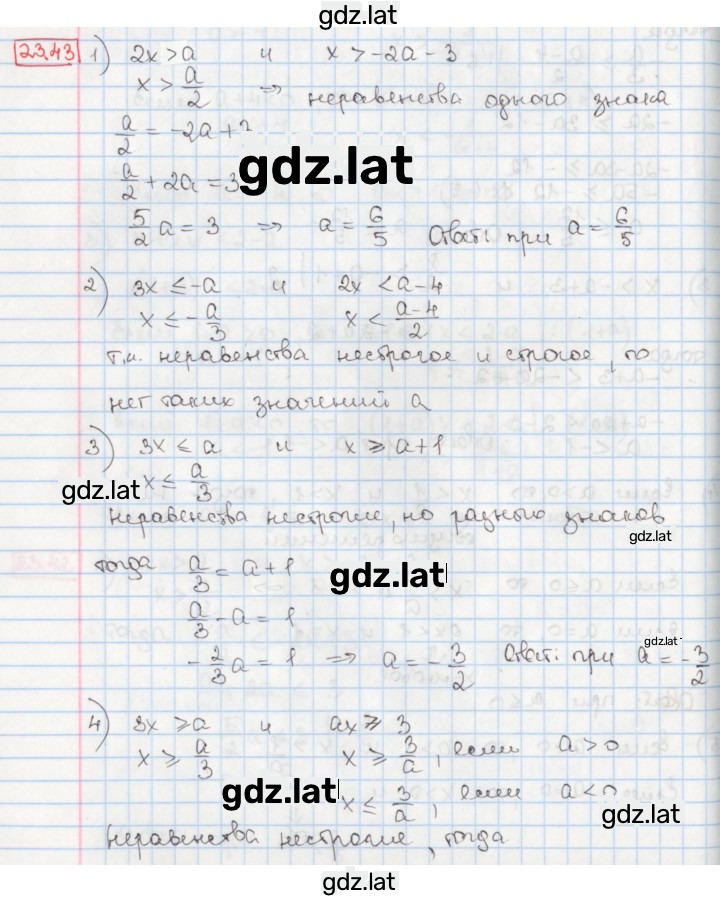 gdz.lat
23.43 1) 2x > a и x > -2a - 3
x > a/2 => неравенства одного знака
a/2 = -2a +
gdz.lat
a/2 + 2a = 3
5/2 a = 3 => a = 6/5 Ответ: при a = 6/5
2) 3x ≤ -a и 2x < a-4
x ≤ -a/3 x < (a-4)/2
т.к. неравенства нестрогое и строгое, то
нет таких значений a
3) 3x ≤ a и x ≥ a+1
gdz.lat x ≤ a/3
неравенства нестрогие, но разного знаков
тогда a/3 = a + 1
gdz.lat
a/3 - a = 1
gdz.lat
-2/3 a = 1 => a = -3/2 Ответ: при a = -3/2
4) 3x ≥ a и ax ≥ 3
x ≥ a/3 x ≥ 3/a, если a > 0
gdz.lat x ≤ 3/a, если a < 0
gdz.lat
неравенства нестрогие, тогда
gdz.lat